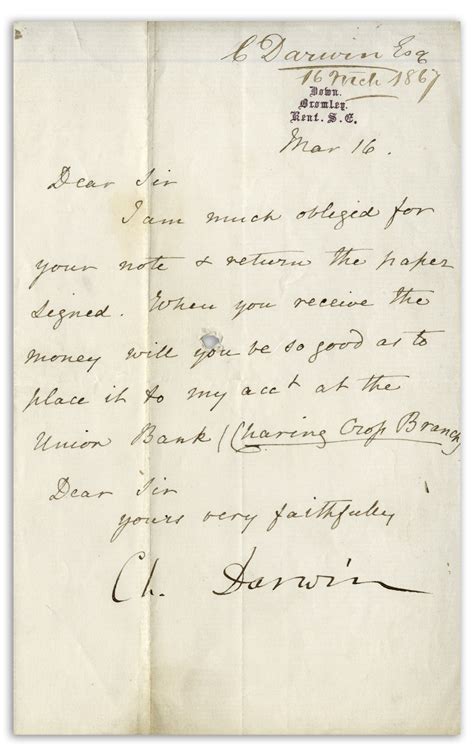 C Darwin Esq
16 Mch 1867
Down.
Bromley.
Kent. S.E.
Mar 16.
Dear Sir
I am much obliged for
your note & return the paper
signed. When you receive the
money will you be so good as to
place it to my acct at the
Union Bank (Charing Croſs Branch)
Dear Sir
yours very faithfully
Ch. Darwin